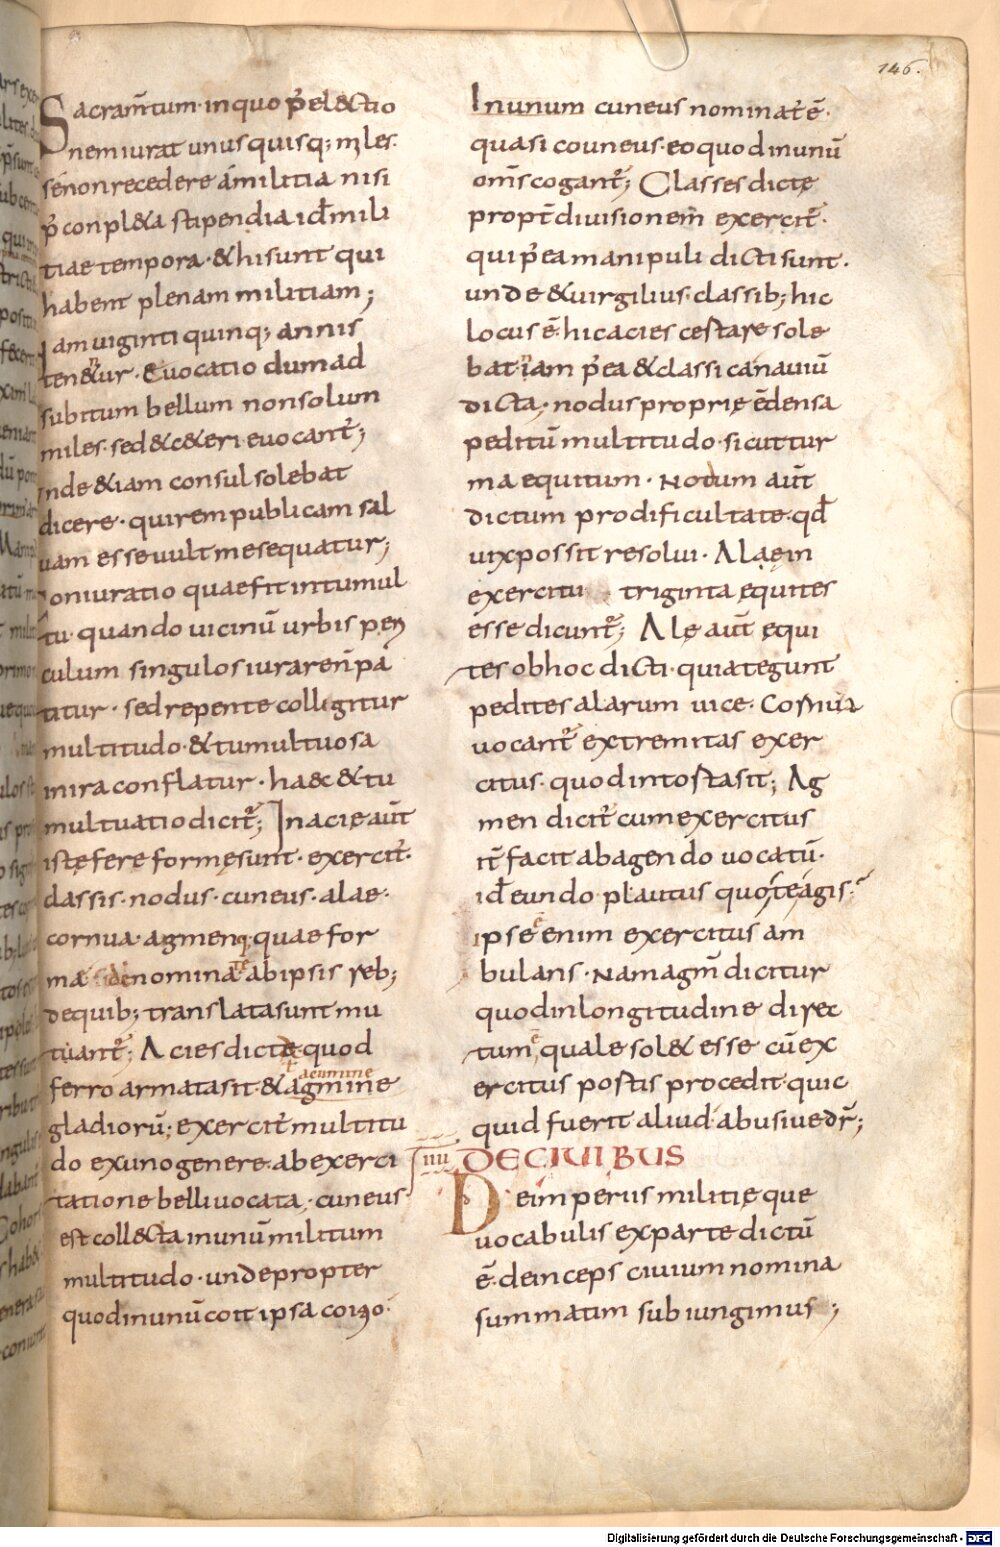 146.
Sacram̄tum· in quo p̄ el&ctio
nem iurat unus quisq; miles·
se non recedere a militia nisi
p̄ conpl&a stipendia· id̄ mili
tiae tempora· & hi sunt qui
habent plenam militiam;
Nam uiginti quinq; annis
ten&ur· Euocatio dum ad
subitum bellum non solum
miles· sed & c&eri euocant̄;
Inde &iam consul solebat
dicere· qui rempublicam sal
uam esse uult me sequatur;
Coniuratio quae fit in tumul
tu· quando uicinū urbis peri
culum singulos iurare n̄ pa
titur· sed repente colligitur
multitudo· & tumultuosa
in ira conflatur· haec & tu
multuatio dicit̄; In acie aūt
istę fere formę sunt· exercit̄·
classis· nodus· cuneus· alae·
cornua· agmen· quae for
mas & nomina ab ipsis reb;
de quib; translata sunt mu
tuant̄; Acies dicta quod
ferro armata sit & agmine
acumine
gladiorū; exercit̄ multitu
do ex uno genere· ab exerci
tatione belli uocata· cuneus
est coll&cta in unū militum
multitudo· unde propter
quod in unū coit ipsa coitio·
In unum cuneus nominat̄ ē·
quasi couneus· eo quod in unū
om̄s cogant̄; Classes dictę
propt̄ diuisionem exercit̄·
qui p̄ea manipuli dicti sunt·
unde & uirgilius· classib; hic
locus ē· hic acies certare sole
bat· iam p̄ea & classica nauiū
dicta· nodus proprię ē densa
peditū multitudo· sicut tur
ma equitum· Nodum aūt
dictum pro dificultate· qđ
uix possit resolui· Alae in
exercitu triginta equites
esse dicunt̄; Alę aūt equi
tes ob hoc dicti· quia tegunt
pedites alarum uice· Cornua
uocant̄ extremitas exer
citus· quod intorta sit; Ag
men dicit̄ cum exercitus
it̄ facit ab agendo uocatū·
id̄ eundo· plautus quo te agis·
ipse enim exercitus am
bulans· Nam agm̄ dicitur
quod in longitudine direc
tum quale sol& esse cū ex
ercitus portis procedit· quic
quid fuerit aliud· abusiue dr̄;
IIII DE CIUIBUS
De imperiis militię que
uocabulis ex parte dictū
ē· deinceps ciuium nomina
summatim subiungimus;
Digitalisierung gefördert durch die Deutsche Forschungsgemeinschaft - DFG